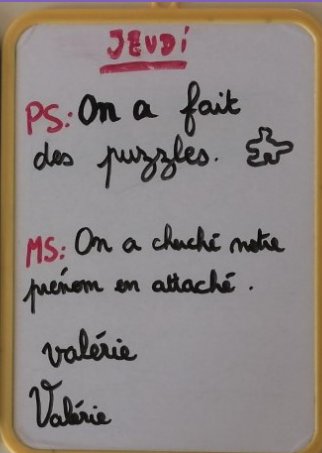 JEUDi
PS: On a fait
des puzzles.
MS: On a cherché notre
prénom en attaché.
valérie
Valérie